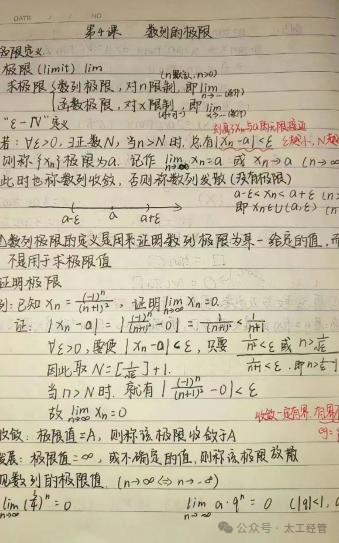 DATE / / NO
第4课 数列的极限
极限定义
极限(limit) lim
求极限{数列极限,对n限制,即lim n→…
(n默认,n>0)
函数极限,对x限制,即lim x→…
"ε-N"定义
若:∀ε>0,∃正数N,当n>N时,总有|xn-a|<ε
则称{xn}极限为a. 记作 lim n→∞ xn=a 或 xn→a (n→∞
此时也称数列收敛,否则称数列发散(没有极限)
a-ε a a+ε
a-ε<xn<a+ε (n>
即 xn∈U(a,ε) (n
数列极限的定义是用来证明数列极限为某一给定的值,而
不是用于求极限值
证明极限
例:已知 xn = (-1)^n/(n+1)², 证明 lim n→∞ xn=0.
证: |xn-a| = |(-1)^n/(n+1)² - 0| = 1/(n+1)² < 1/(n+1)
∀ε>0,要使 |xn-a|<ε, 只要
因此取 N=
当 n>N 时, 就有 |(-1)^n/(n+1)² - 0|<ε
故 lim n→∞ xn=0
收敛一定有界,有界
收敛:极限值=A,则称该极限收敛于A
发展:极限值=∞,或不确定的值,则称该极限放散
见数列的极限值 (n→∞⇔n→-∞)
lim n→∞ = 0 lim n→∞ a·q^n = 0 (|q|<1,
公众号·太工经管